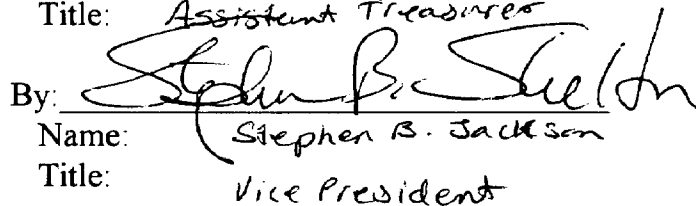 Title: Assistant Treasurer
By: Stephen B. Shelton
Name: Stephen B. Jackson
Title: Vice President